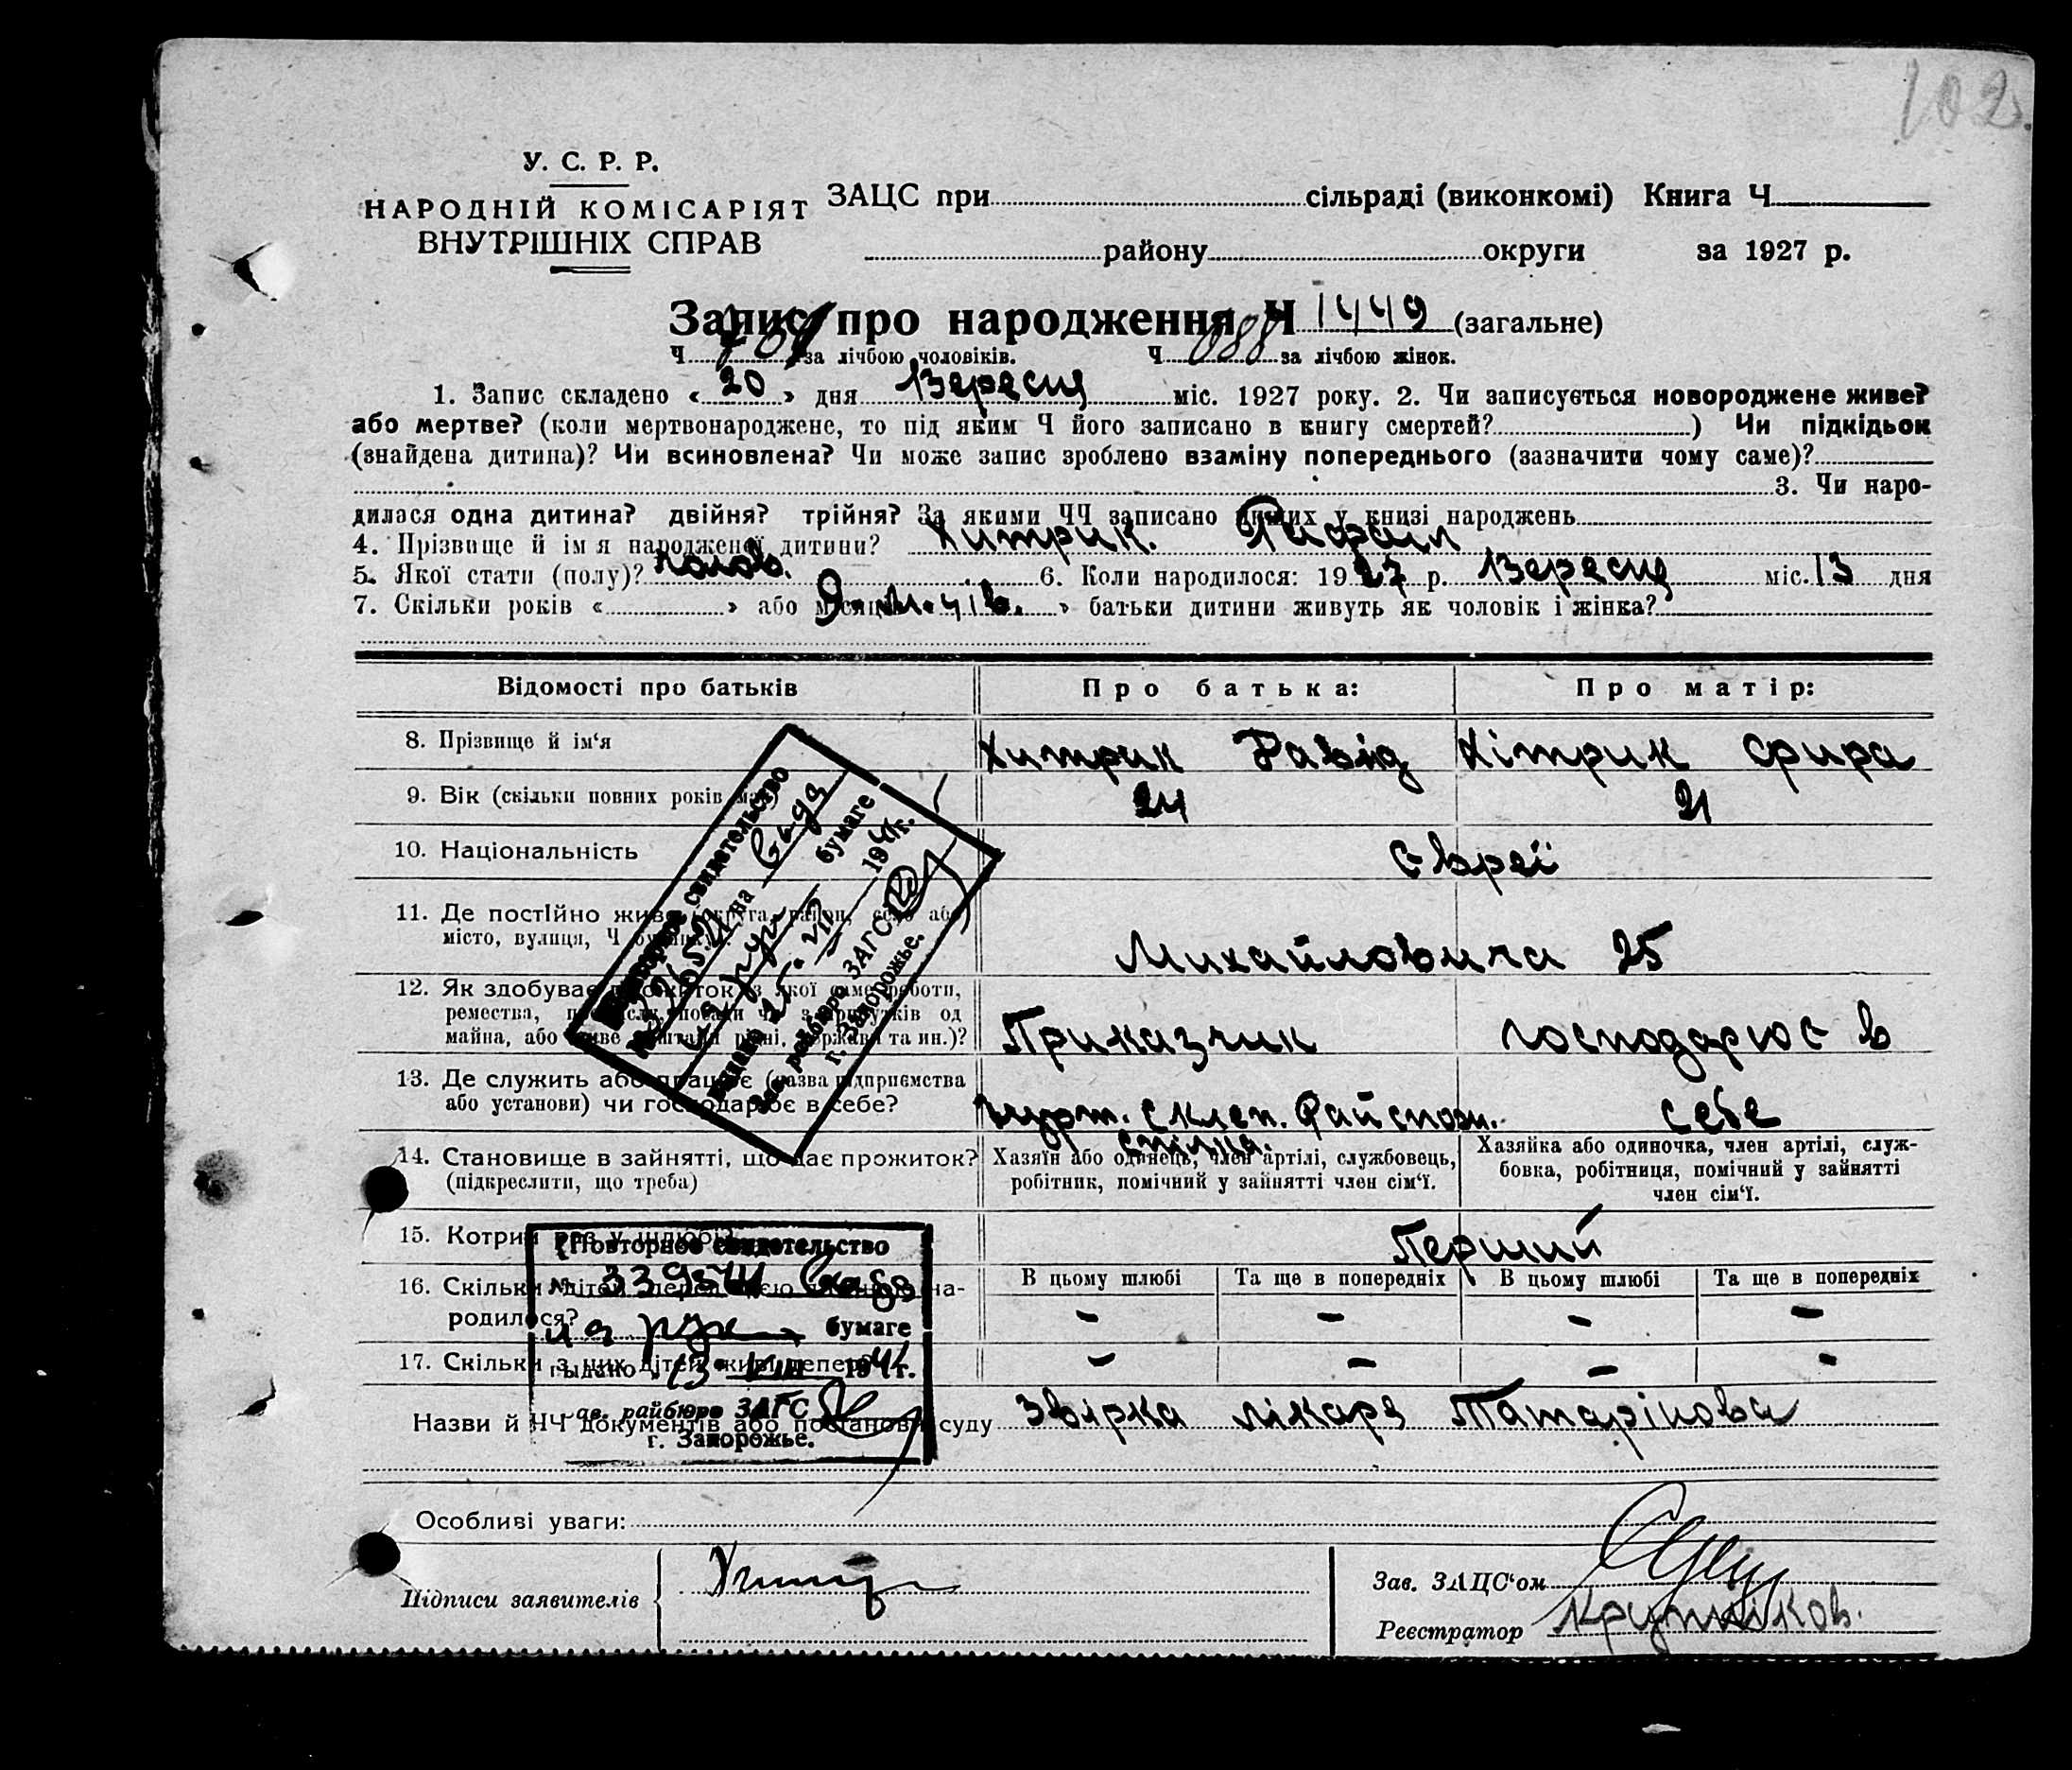 102.
У. С. Р. Р.
НАРОДНІЙ КОМІСАРІЯТ
ВНУТРІШНІХ СПРАВ
ЗАЦС при сільраді (виконкомі) Книга Ч
району округи за 1927 р.
Запис про народження Ч 1449 (загальне)
Ч за лічбою чоловіків. Ч 688 за лічбою жінок.
1. Запис складено « 20 » дня Вересня міс. 1927 року. 2. Чи записується новороджене живе?
або мертве? (коли мертвонароджене, то під яким Ч його записано в книгу смертей? ) Чи підкідьок
(знайдена дитина)? Чи всиновлена? Чи може запис зроблено взаміну попереднього (зазначити чому саме)?
3. Чи наро-
дилася одна дитина? двійня? трійня? За якими ЧЧ записано инших у книзі народжень
4. Прізвище й ім я народженої дитини? Хитрик. Рафаил
5. Якої стати (полу)? чолов. 6. Коли народилося: 1927 р. Вересня міс. 13 дня
7. Скільки років « » або місяців » батьки дитини живуть як чоловік і жінка?
Відомості про батьків
Про батька:
Про матір:
8. Прізвище й ім‘я
Хитрик Давід
Хітрик Єфира
9. Вік (скільки повних років має)
24
21
10. Національність
Євреї
11. Де постІйно живе (округа, район, село або
місто, вулиця, Ч будинку).
Михайловича 25
12. Як здобуває прожиток з якої саме роботи,
ремества, промислу, посади чи з прибутків од
майна, або живе коштами рідні, держави та ин.)?
Приказчик
господарює в
13. Де служить або працює (назва підприємства
або установи) чи господарює в себе?
гурт. склеп. Райспож.
спілка.
себе
14. Становище в зайнятті, що дає прожиток?
(підкреслити, що треба)
Хазяїн або одинець, член артілі, службовець,
робітник, помічний у зайнятті член сім‘ї.
Хазяйка або одиночка, член артілі, служ-
бовка, робітниця, помічний у зайнятті
член сім‘ї.
15. Котрий раз у шлюбі?
Перший
16. Скільки дітей перед цією дитиною на-
родилося?
В цьому шлюбі
Та ще в попередніх
В цьому шлюбі
Та ще в попередніх
–
–
–
–
17. Скільки з цих дітей живі тепер?
–
–
–
–
Назви й ЧЧ документів або постанови суду
Звірка лікаря Татарінова
Особливі уваги:
Підписи заявителів
Зав. ЗАЦС‘ом
Реєстратор
Крутніков.
Повторное свидетельство
на
бумаге
Выдано 15. VIII 1941г.
Зав. райбюро ЗАГС
г. Запорожье.
Повторное свидетельство
№
бумаге
Выдано 13 VIII 1941г.
Зав. райбюро ЗАГС
г. Запорожье.